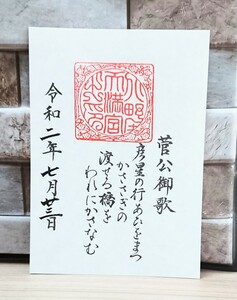 菅公御歌
彦星の行あひをまつ
かささぎの
渡せる橋を
われにかさなむ
北野
天満宮
令和二年七月廿三日